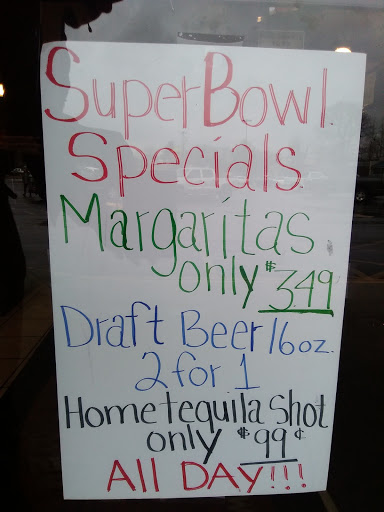 Super Bowl.
Specials.
Margaritas
only $349
Draft Beer 16oz.
2 for 1
Home tequila Shot
only $99¢
ALL DAY!!!